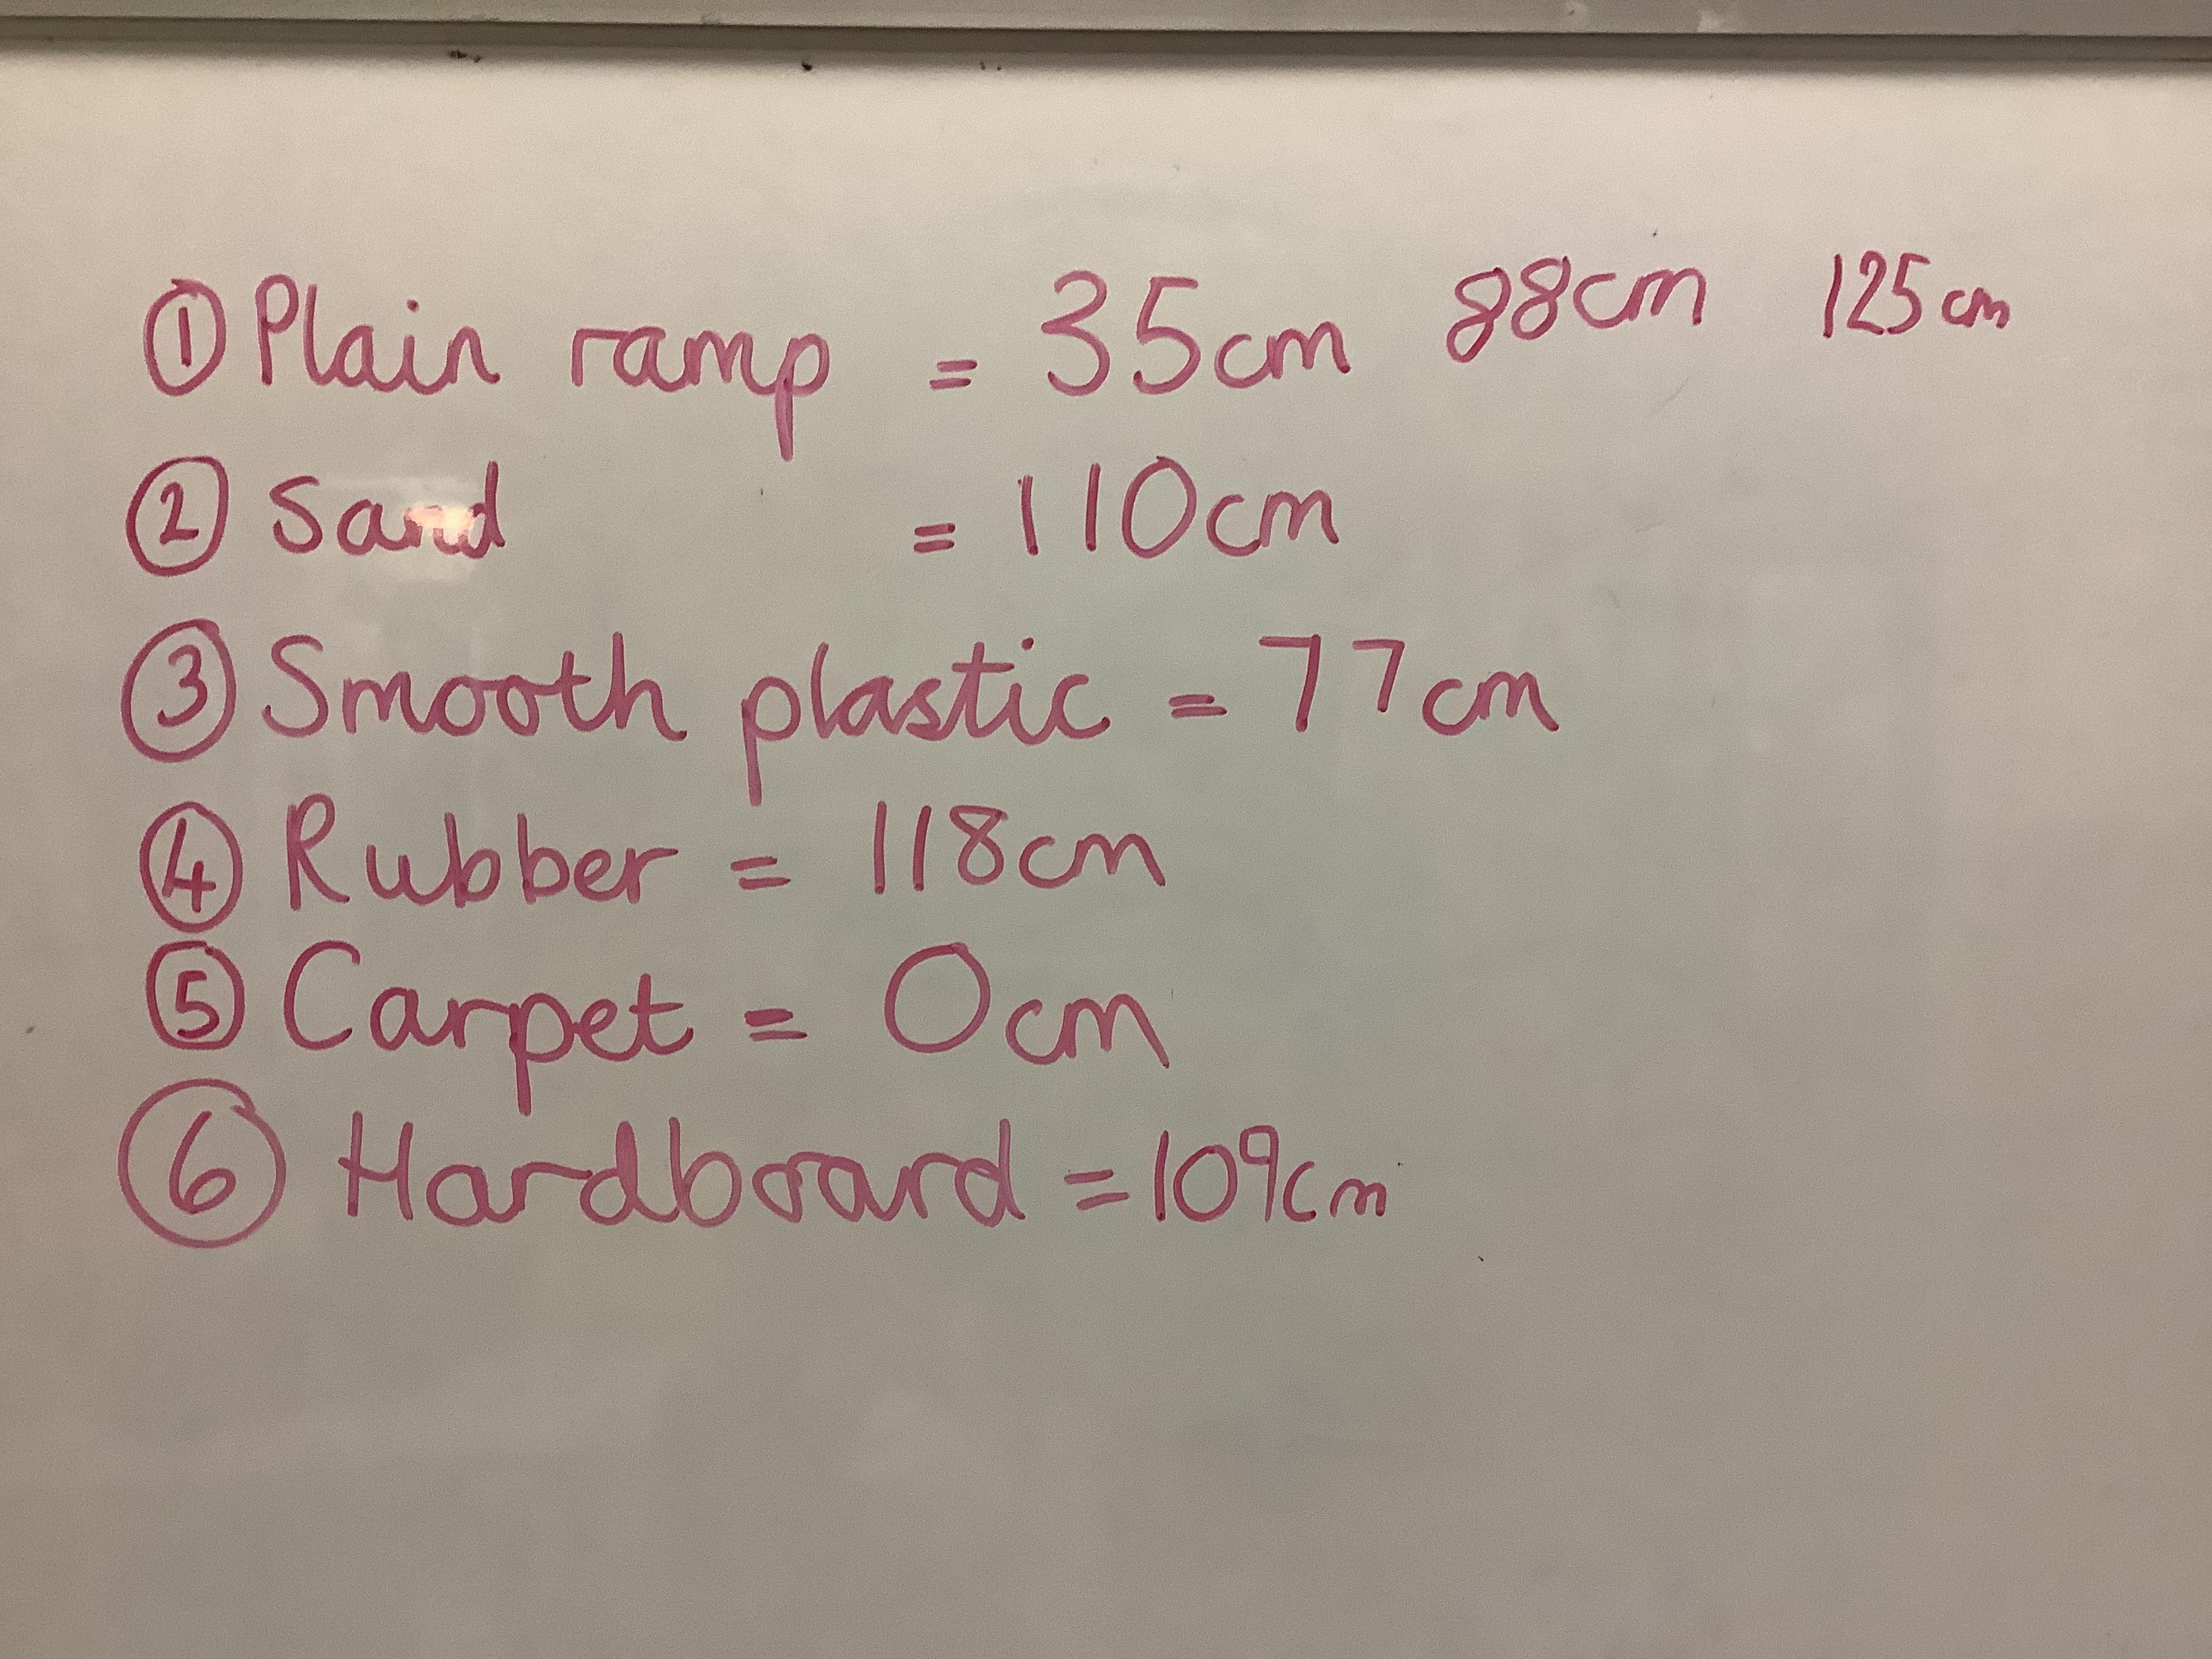 ① Plain ramp = 35cm 88cm 125cm
② Sand = 110cm
③ Smooth plastic = 77cm
④ Rubber = 118cm
⑤ Carpet = 0cm
⑥ Hardboard = 109cm